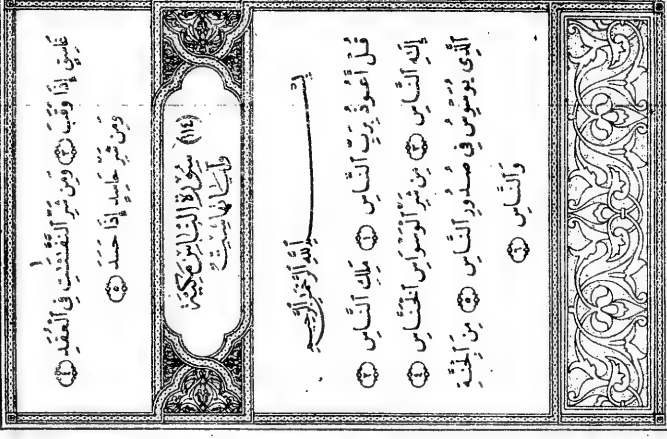 غَاسِقٍ إِذَا وَقَبَ ﴿٣﴾ وَمِن شَرِّ ٱلنَّفَّٰثَٰتِ فِى ٱلْعُقَدِ ﴿٤﴾
وَمِن شَرِّ حَاسِدٍ إِذَا حَسَدَ ﴿٥﴾
(١١٤) سُورَةُ النَّاسِ مَكِّيَّة
وَآيَاتُهَا سِتٌّ
بِسْمِ ٱللَّهِ ٱلرَّحْمَٰنِ ٱلرَّحِيمِ
قُلْ أَعُوذُ بِرَبِّ ٱلنَّاسِ ﴿١﴾ مَلِكِ ٱلنَّاسِ ﴿٢﴾
إِلَٰهِ ٱلنَّاسِ ﴿٣﴾ مِن شَرِّ ٱلْوَسْوَاسِ ٱلْخَنَّاسِ ﴿٤﴾
ٱلَّذِى يُوَسْوِسُ فِى صُدُورِ ٱلنَّاسِ ﴿٥﴾ مِنَ ٱلْجِنَّةِ
وَٱلنَّاسِ ﴿٦﴾